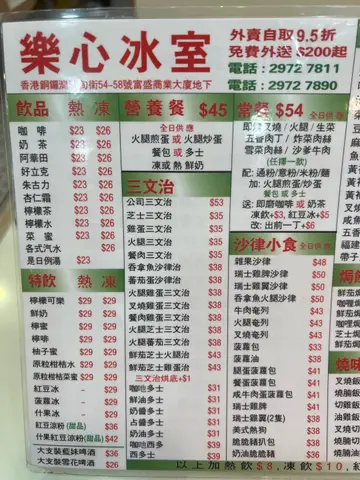 樂心冰室
外賣自取9.5折
免費外送$200起
電話:2972 7811
電話:2972 7890
街54-58號富盛商業大廈地下
飲品 熱 凍
咖啡 $23 $26
奶茶 $23 $26
阿華田 $23 $26
好立克 $23 $26
朱古力 $23 $26
杏仁霜 $23 $26
檸檬茶 $23 $26
檸檬水 $23 $26
菜蜜 $23 $26
各式汽水 $26
是日例湯 $23
特飲 熱 凍
檸檬可樂 $29 $29
鮮奶 $29 $29
檸蜜 $29 $29
檸啡 $29 $29
柚子蜜 $29 $29
原粒柑桔水 $29 $29
原粒柑桔菜蜜 $29 $29
紅豆冰 $29
菠蘿冰 $29
什果冰 $29
紅豆涼粉(甜品) $31
什果涼粉(甜品) $42
大支裝藍妹啤酒 $36
大支裝雪花啤酒 $26
營養餐 $45
全日供應
火腿煎蛋 或 火腿炒蛋
餐包 或 多士
凍或熱 鮮奶
三文治
公司三文治 $53
芝士三文治 $35
雞蛋三文治 $35
火腿三文治 $35
餐肉三文治 $35
吞拿魚沙律三文治 $39
蕃茄蛋沙律三文治 $39
火腿雞蛋三文治 $39
叉燒雞蛋三文治 $39
餐肉雞蛋三文治 $39
火腿芝士三文治 $39
火腿蕃茄三文治 $39
鮮茄芝士火腿治 $39
鮮茄芝士三文治 $39
三文治烘底+$1
咖吔多士 $31
鮮油多士 $31
奶醬多士 $31
占醬多士 $31
奶油多士 $31
咖吔西多 $39
西多士 $39
常餐 $54 全日供應
即煎叉燒/火腿/生菜
五香肉丁/炸菜肉絲
雪菜肉絲/沙爹牛肉
(任擇一款)
配:通粉/意粉/米粉/麵
加:火腿煎蛋/炒蛋
餐包 或 多士
送:即磨咖啡 或 奶茶
凍飲+$3,紅豆冰+$5
改:出前一丁+$6
沙律小食 全日供應
雜果沙律 $48
瑞士雞脾沙律 $50
瑞士雞翼沙律 $50
吞拿魚火腿沙律 $50
牛肉奄列 $29
火腿奄列 $29
叉燒奄列 $29
菠蘿包 $33
菠蘿油 $38
腿蛋菠蘿包 $41
餐蛋菠蘿包 $41
咸牛肉蛋菠蘿包 $41
瑞士雞脾 $41
瑞士雞翼(2隻) $38
美式熱狗 $38
脆脆豬扒包 $41
奶油脆脆豬 $38
以上加熱飲$8,凍飲$10,紅